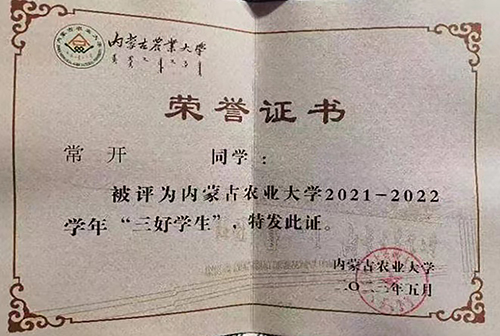 内蒙古农業大学
荣誉证书
常开 同学：
被评为内蒙古农业大学2021-2022
学年“三好学生”，特发此证。
内蒙古农业大学
二〇二二年五月